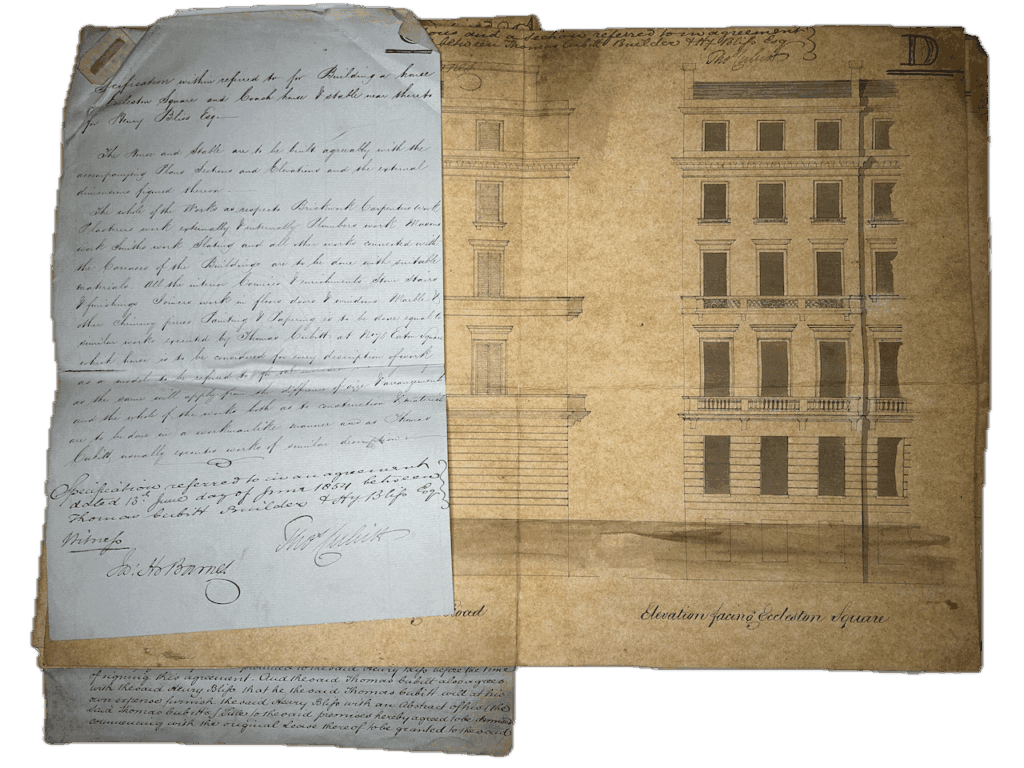 Specification within referred to for Building a house
Eccleston Square and Coach house & stable near thereto
for Henry Bliss Esqr
The House and Stable are to be built agreeably with the
accompanying Plans Sections and Elevations and the external
dimensions figured thereon
The whole of the Works as respects Brickwork Carpenters work
Plasterers work externally & internally Plumbers work Masons
work Smiths work Slating and all other works connected with
the Carcases of the Buildings are to be done with suitable
materials. All the interior Cornices & enrichments Stone Stairs
& furnishings Joiners work in floors doors & windows Marble &
other Chimney pieces Painting & Papering is to be done equal to
similar works executed by Thomas Cubitt at Eaton Square
which house is to be considered for every description of work
as a model to be referred to
as the same will apply from the difference of size & arrangement
and the whole of the works both as to construction & material
are to be done in a workmanlike manner and as Thomas
Cubitt usually executes works of similar description
Specification referred to in an agreement
dated 13th June day of June 1854 between
Thomas Cubitt Builder & Hy Bliss Esqr
Witness
Thos Cubitt
Jas. H. Barnes
and a section referred to in agreement
between Thomas Cubitt Builder & Hy Bliss Esqr
Thos Cubitt
D
Road
Elevation facing Eccleston Square
provided to the said Henry Bliss before the time
of signing this agreement. And the said Thomas Cubitt also agrees
with the said Henry Bliss that he the said Thomas Cubitt will at his
own expense furnish the said Henry Bliss with an Abstract of his (the
said Thomas Cubitts) Title to the said premises hereby agreed to be demised
commencing with the original Lease thereof to be granted to the said